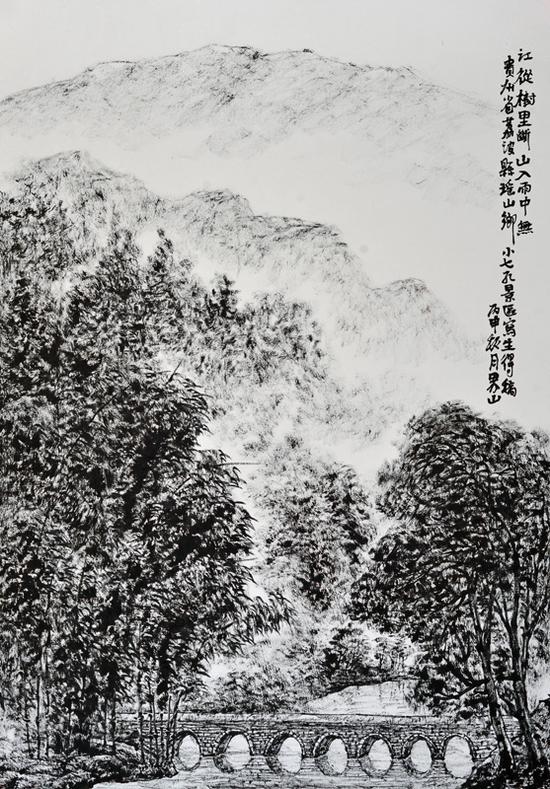 江從樹里斷山入雨中無
貴州省荔波縣瑤山鄉 小七孔景區寫生得稿
丙申秋月山